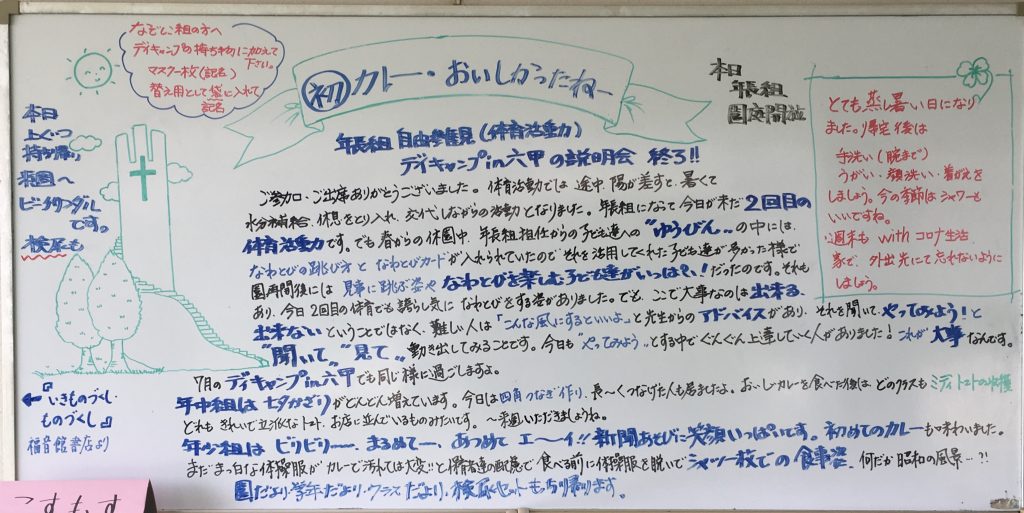 なでしこ組の方へ
デイキャンプの持ち物に加えて下さい。
マスク一枚(記名)
替え用として袋に入れて
記名
㊗ カレー・おいしかったねー
本日
年長組
園庭開放
年長組 自由参観(体育活動)
デイキャンプin六甲の説明会 終る!!
本日
上ぐつ
持ち帰り
来園へ
ビーチサンダル
です。
検尿も
ご参加・ご出席ありがとうございました。体育活動では 途中、陽が差すと、暑くて
水分補給、休息をとり入れ、交代しながらの活動となりました。年長組になって今日が未だ2回目の
体育活動です。でも春からの休園中、年長組担任からの子ども達への〝ゆうびん〟の中には、
なわとびの跳び方となわとびカードが入れられていたのでそれを活用してくれた子ども達が多かった様で
園再開後には 見事に跳ぶ姿やなわとびを楽しむ子ども達がいっぱい!だったのです。それも
あり、今日2回目の体育も誇らし気になわとびをする姿がありました。でも、ここで大事なのは出来る、
出来ないということではなく、難しい人は「こんな風にするといいよ」と先生からのアドバイスがあり、それを聞いて、やってみよう!と
〝聞いて〟〝見て〟動き出してみることです。今日も〝やってみよう〟とする中でぐんぐん上達していく人がありました!これが大事なんです。
7月のデイキャンプin六甲でも同じ様に過ごしますよ。
年中組は 七夕かざりがどんどん増えています。今日は四角つなぎ作り、長〜くつなげた人も居ましたよ。お〜いしいカレーを食べた後は、どのクラスもミディトマトの収穫
どれもきれいで立派なトマト、お店に並んでいるものみたいです。〜来週いただきましょうね。
年少組は ビリビリーー、まるめてー、あつめて エーイ!!新聞あそびに笑顔いっぱいです。初めてのカレーも味わいました。
まだまっ白な体操服がカレーで汚れては大変!!と保育者達の配慮で食べる前に体操服を脱いでシャツ一枚での食事姿、何だか昭和の風景…?!
園だより・学年だより・クラスだより・検尿セットもち帰ります。
とても蒸し暑い日になり
ました。帰宅後は
手洗い(腕まで)
うがい・顔洗い・着がえを
しましょう。今の季節はシャワーも
いいですね。
週末もwithコロナ生活
家で、外出先にて忘れないように
しましょう。
←『いきものづくし・
ものづくし』
福音館書店より
こすもす